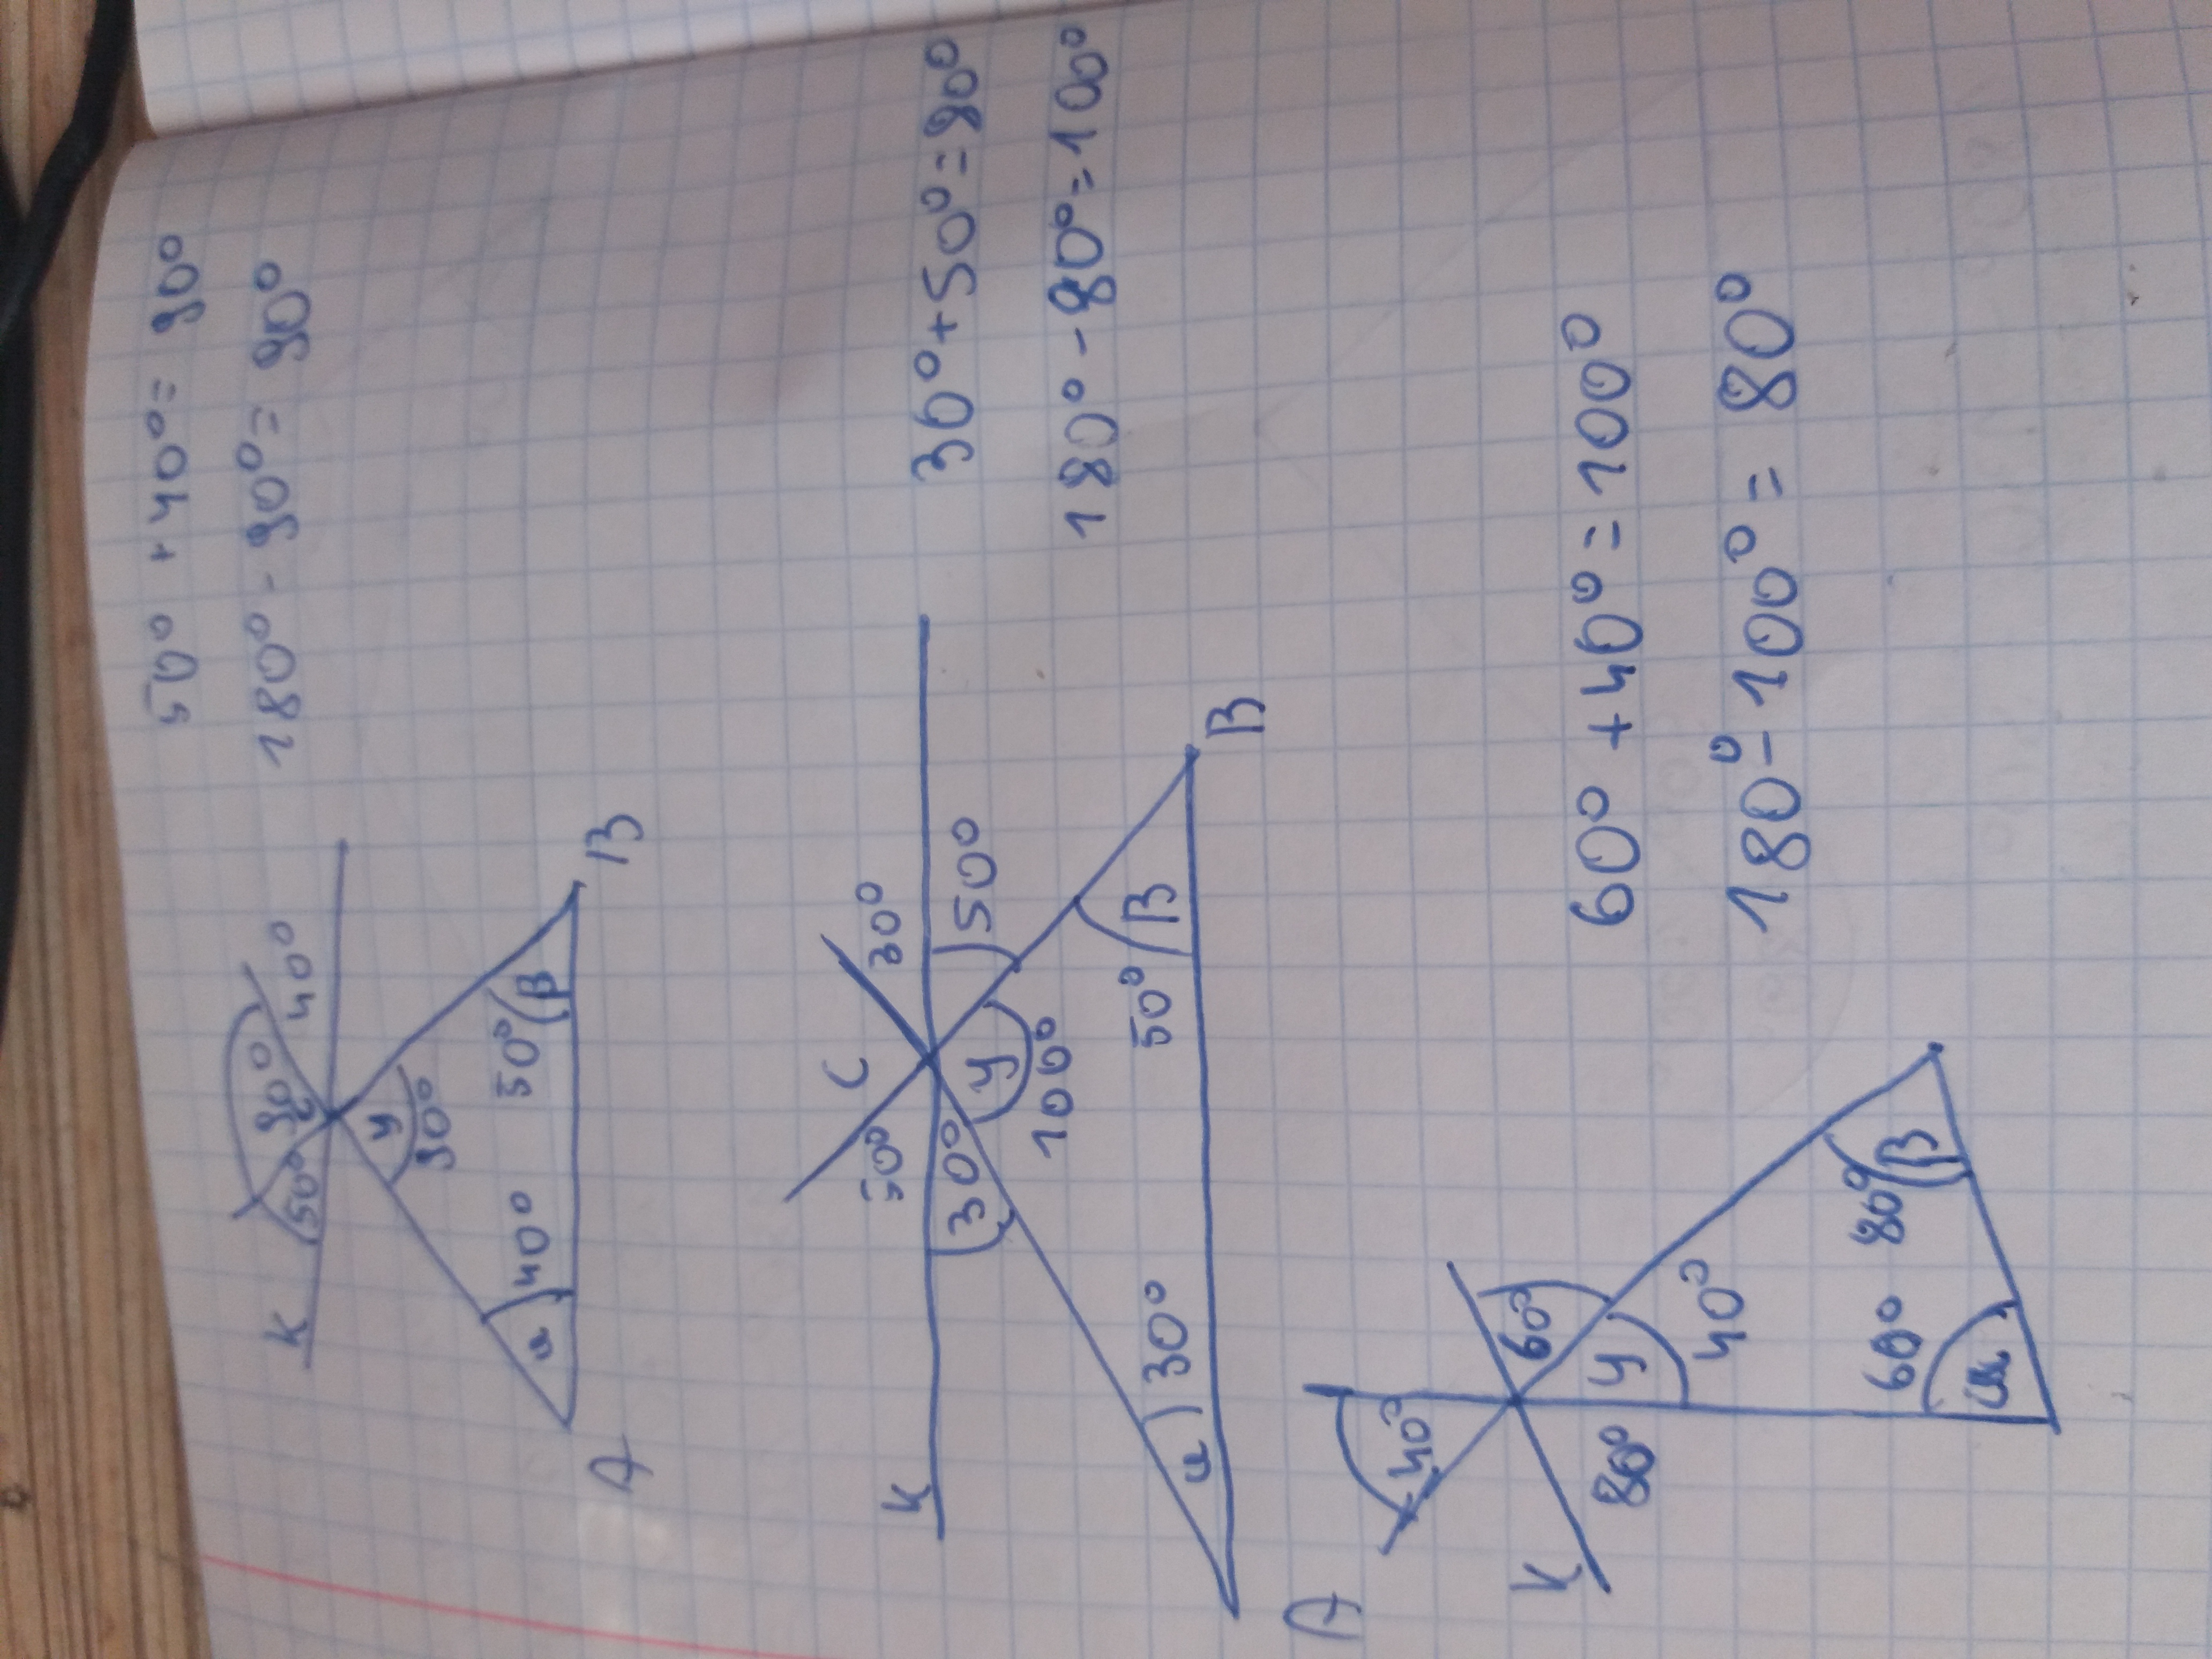 50° + 40° = 90°
180° - 90° = 90°
90° 40°
K 50°
γ
90°
40° 50°
α β
A B
30° + 50° = 80°
180° - 80° = 100°
C
50° 30°
K 30° 50°
γ
100°
30° 50°
α β
A B
60° + 40° = 100°
180° - 100° = 80°
40°
60°
K
80° γ
40°
60° 80°
α β